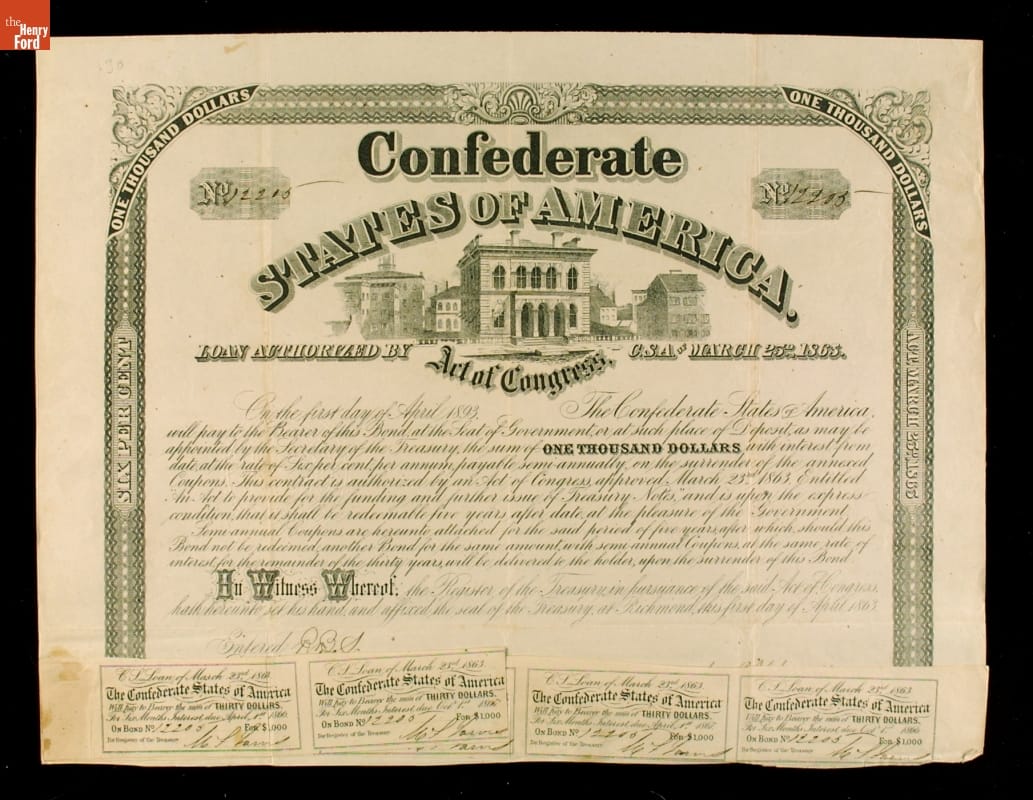 the
Henry
Ford
ONE THOUSAND DOLLARS
ONE THOUSAND DOLLARS
Confederate
No 12205
No 12205
STATES OF AMERICA.
LOAN AUTHORIZED BY Act of Congress, C.S.A. OF MARCH 23RD 1863.
SIX PER CENT
ACT MARCH 23D, 1863
On the first day of April 1893, The Confederate States of America,
will pay to the Bearer of this Bond, at the Seat of Government, or at such place of Deposit, as may be
appointed by the Secretary of the Treasury, the sum of ONE THOUSAND DOLLARS with interest from
date, at the rate of Six per cent, per annum, payable semi-annually, on the surrender of the annexed
Coupons. This contract is authorized by an Act of Congress, approved March 23rd 1863, Entitled
"An Act to provide for the funding and further issue of Treasury Notes," and is upon the express
condition, that it shall be redeemable five years after date, at the pleasure of the Government.
Semi-annual Coupons are hereunto attached for the said period of five years, after which, should this
Bond not be redeemed, another Bond for the same amount, with semi-annual Coupons, at the same rate of
interest for the remainder of the thirty years, will be delivered to the holder, upon the surrender of this Bond.
In Witness Whereof, the Register of the Treasury, in pursuance of the said Act of Congress,
hath hereunto set his hand, and affixed the seal of the Treasury, at Richmond, this first day of April 1863.
Entered R.B.S.
C.S. Loan of March 23rd 1863.
The Confederate States of America
Will pay to Bearer the sum of THIRTY DOLLARS.
For Six Months Interest, due April, 1st 1866.
ON BOND No 12205 FOR $1,000
For Register of the Treasury
C.S. Loan of March 23rd 1863.
The Confederate States of America
Will pay to Bearer the sum of THIRTY DOLLARS.
For Six Months Interest, due Oct 1st 1866
ON BOND No 12205 FOR $1,000
For Register of the Treasury
C.S. Loan of March 23rd 1863.
The Confederate States of America
Will pay to Bearer the sum of THIRTY DOLLARS.
For Six Months Interest, due April 1st 1867
ON BOND No 12205 FOR $1,000
For Register of the Treasury
C.S. Loan of March 23rd 1863.
The Confederate States of America
Will pay to Bearer the sum of THIRTY DOLLARS.
For Six Months Interest, due Oct 1st
ON BOND No 12205 FOR $1,000
For Register of the Treasury